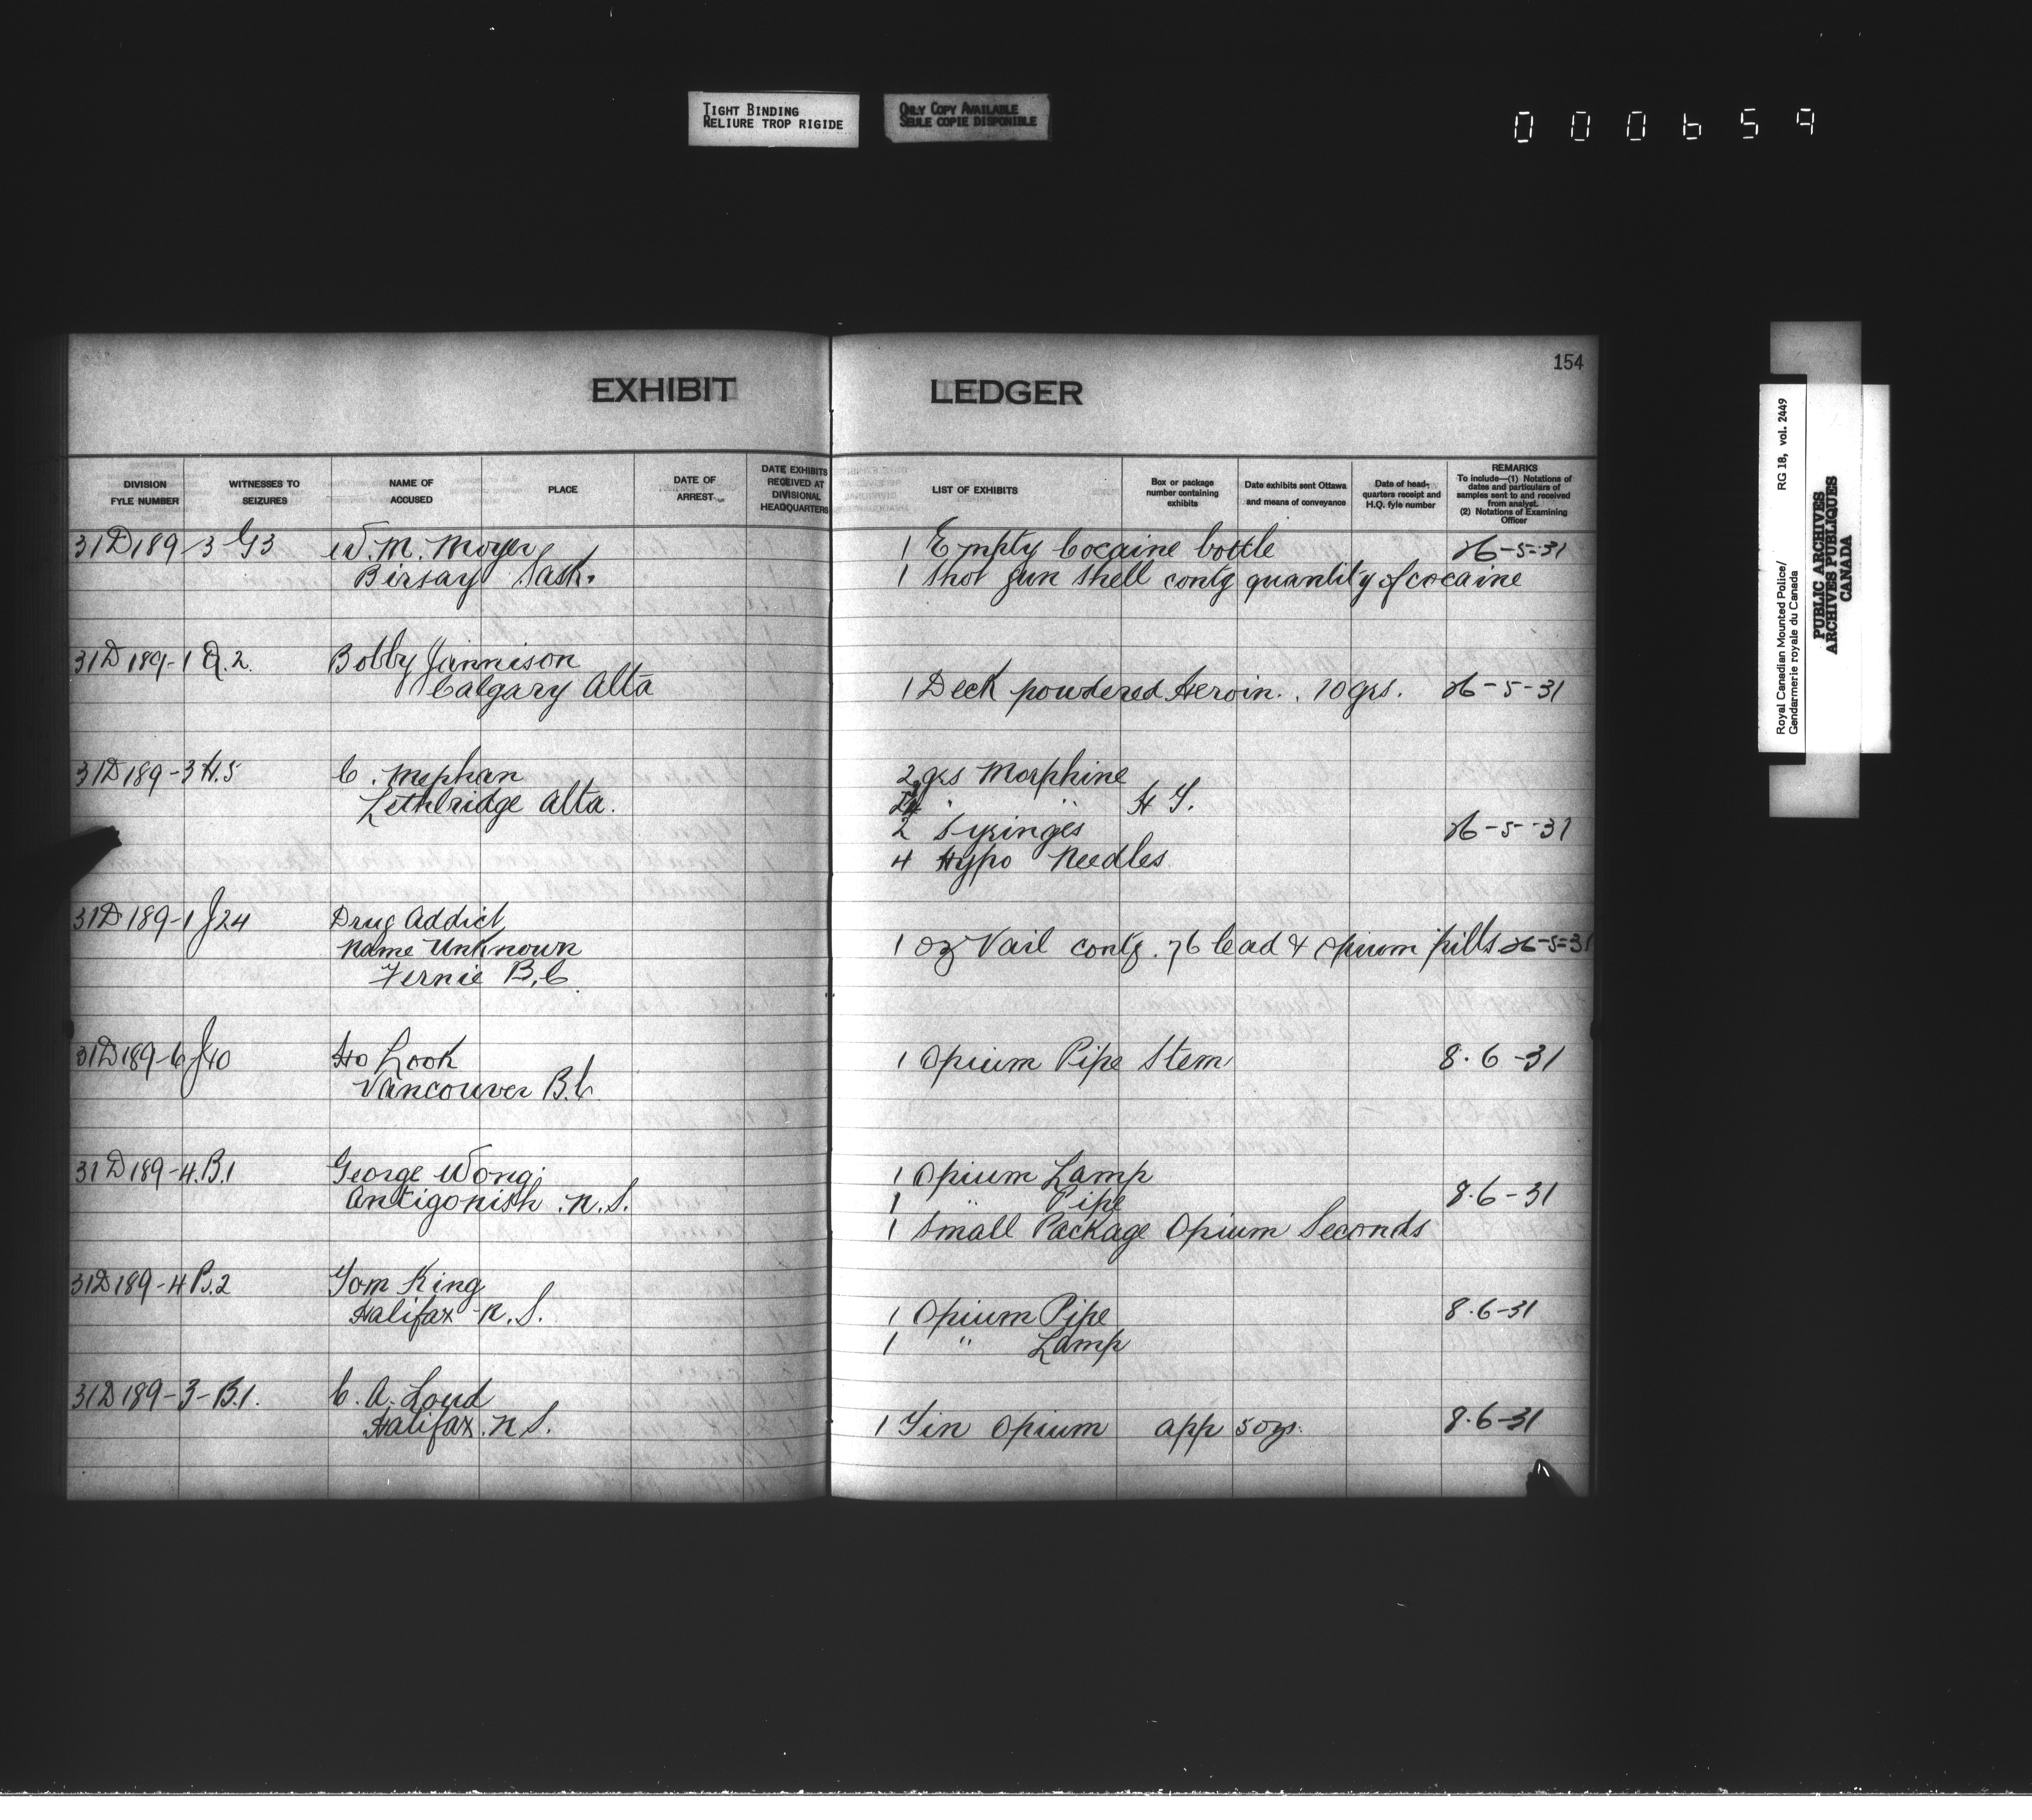 TIGHT BINDING
RELIURE TROP RIGIDE
ONLY COPY AVAILABLE
SEULE COPIE DISPONIBLE
000659
154
EXHIBIT LEDGER
DIVISION FYLE NUMBER
WITNESSES TO SEIZURES
NAME OF ACCUSED
PLACE
DATE OF ARREST
DATE EXHIBITS RECEIVED AT DIVISIONAL HEADQUARTERS
LIST OF EXHIBITS
Box or package number containing exhibits
Date exhibits sent Ottawa and means of conveyance
Date of head-quarters receipt and H.Q. fyle number
REMARKS
To include—(1) Notations of dates and particulars of samples sent to and received from analyst.
(2) Notations of Examining Officer
31D189-3 G3 W. M. Moyer 1 Empty Cocaine bottle 26-5-31
Birsay Sask. 1 Shot gun shell contg quantity of cocaine
31D189-1 Q.2. Bobby Jannison
Calgary Alta 1 Deck powdered Heroin. . 10 grs. 26-5-31
31D189-3 H.5 C. Mephan 2 grs Morphine
Lethbridge Alta. " " H T.
2 Syringes 26-5-31
4 Hypo Needles
31D189-1 J24 Drug Addict
Name Unknown 1 oz Vail contg. 76 lead & opium pills 26-5-31
Fernie B.C
31D189-6 J40 Ho Look 1 Opium Pipe Stem 8.6-31
Vancouver B.C.
31D189-4.B.1 George Wong. 1 Opium Lamp
Antigonish . N.S. 1 " Pipe 8.6-31
1 Small Package Opium Seconds
31D189-4 B.2 Tom King
Halifax N.S. 1 Opium Pipe 8.6-31
1 " Lamp
31D189-3-B.1. C. A. Loud
Halifax. N S. 1 Tin Opium app 5 ozs. 8.6-31
Royal Canadian Mounted Police/ RG 18, vol. 2449
Gendarmerie royale du Canada
PUBLIC ARCHIVES
ARCHIVES PUBLIQUES
CANADA